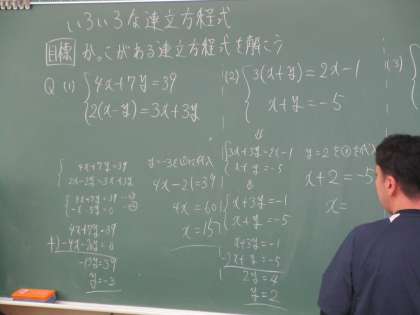 いろいろな連立方程式
目標 かっこがある連立方程式を解こう
Q (1) 4x+7y=39
2(x-y)=3x+3y
4x+7y=39
2x-2y=3x+3y
4x+7y=39
-x-5y=0
4x+7y=39
+)-4x-20y=0
-13y=39
y=-3
y=-3を①に代入
4x-21=39
4x=60
x=15
(2) 3(x+y)=2x-1
x+y=-5
3x+3y=2x-1
x+y=-5
x+3y=-1
x+y=-5
x+3y=-1
-)x+y=-5
2y=4
y=2
y=2を②に代入
x+2=-5
x=
(3)